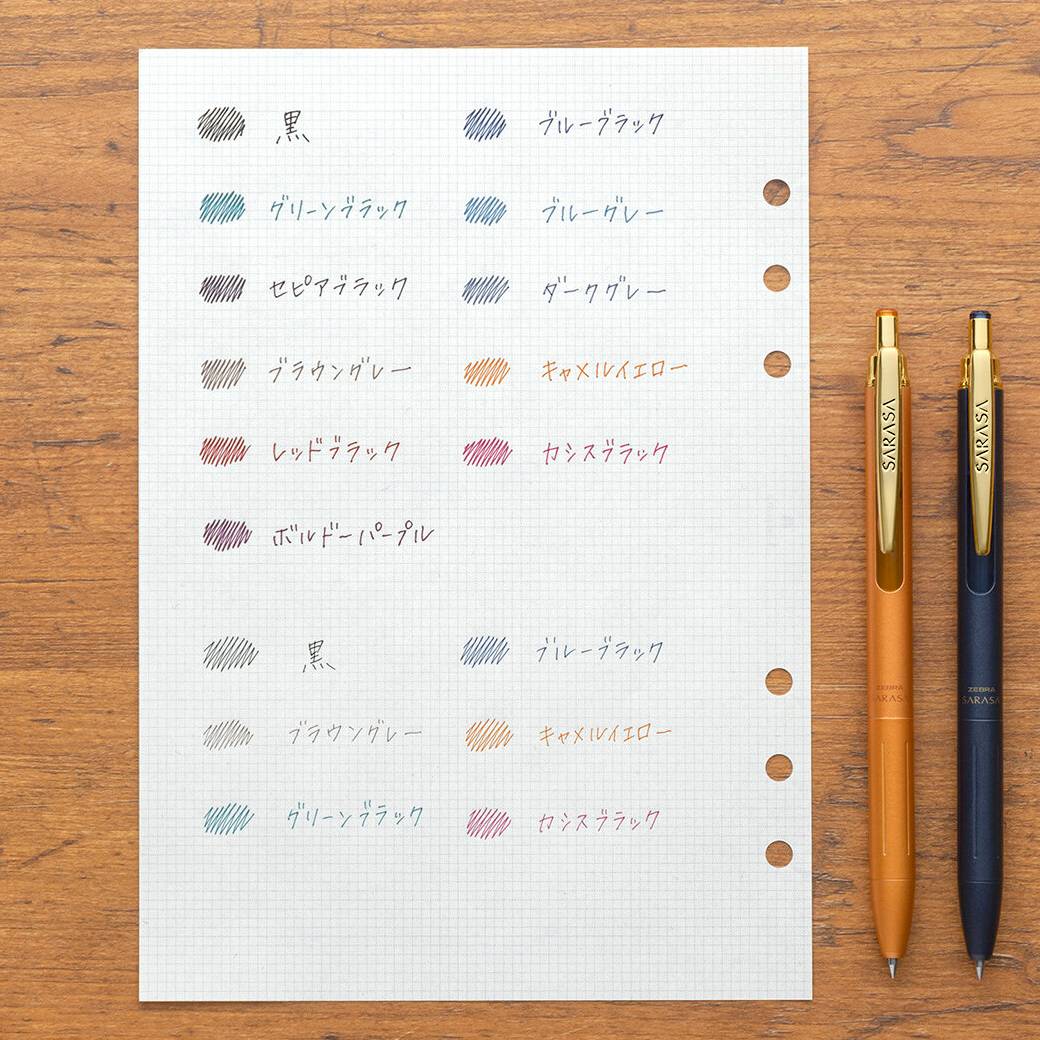 黒 ブルーブラック
グリーンブラック ブルーグレー
セピアブラック ダークグレー
ブラウングレー キャメルイエロー
レッドブラック カシスブラック
ボルドーパープル
黒 ブルーブラック
ブラウングレー キャメルイエロー
グリーンブラック カシスブラック
SARASA
ZEBRA
SARASA
SARASA
ZEBRA
SARASA